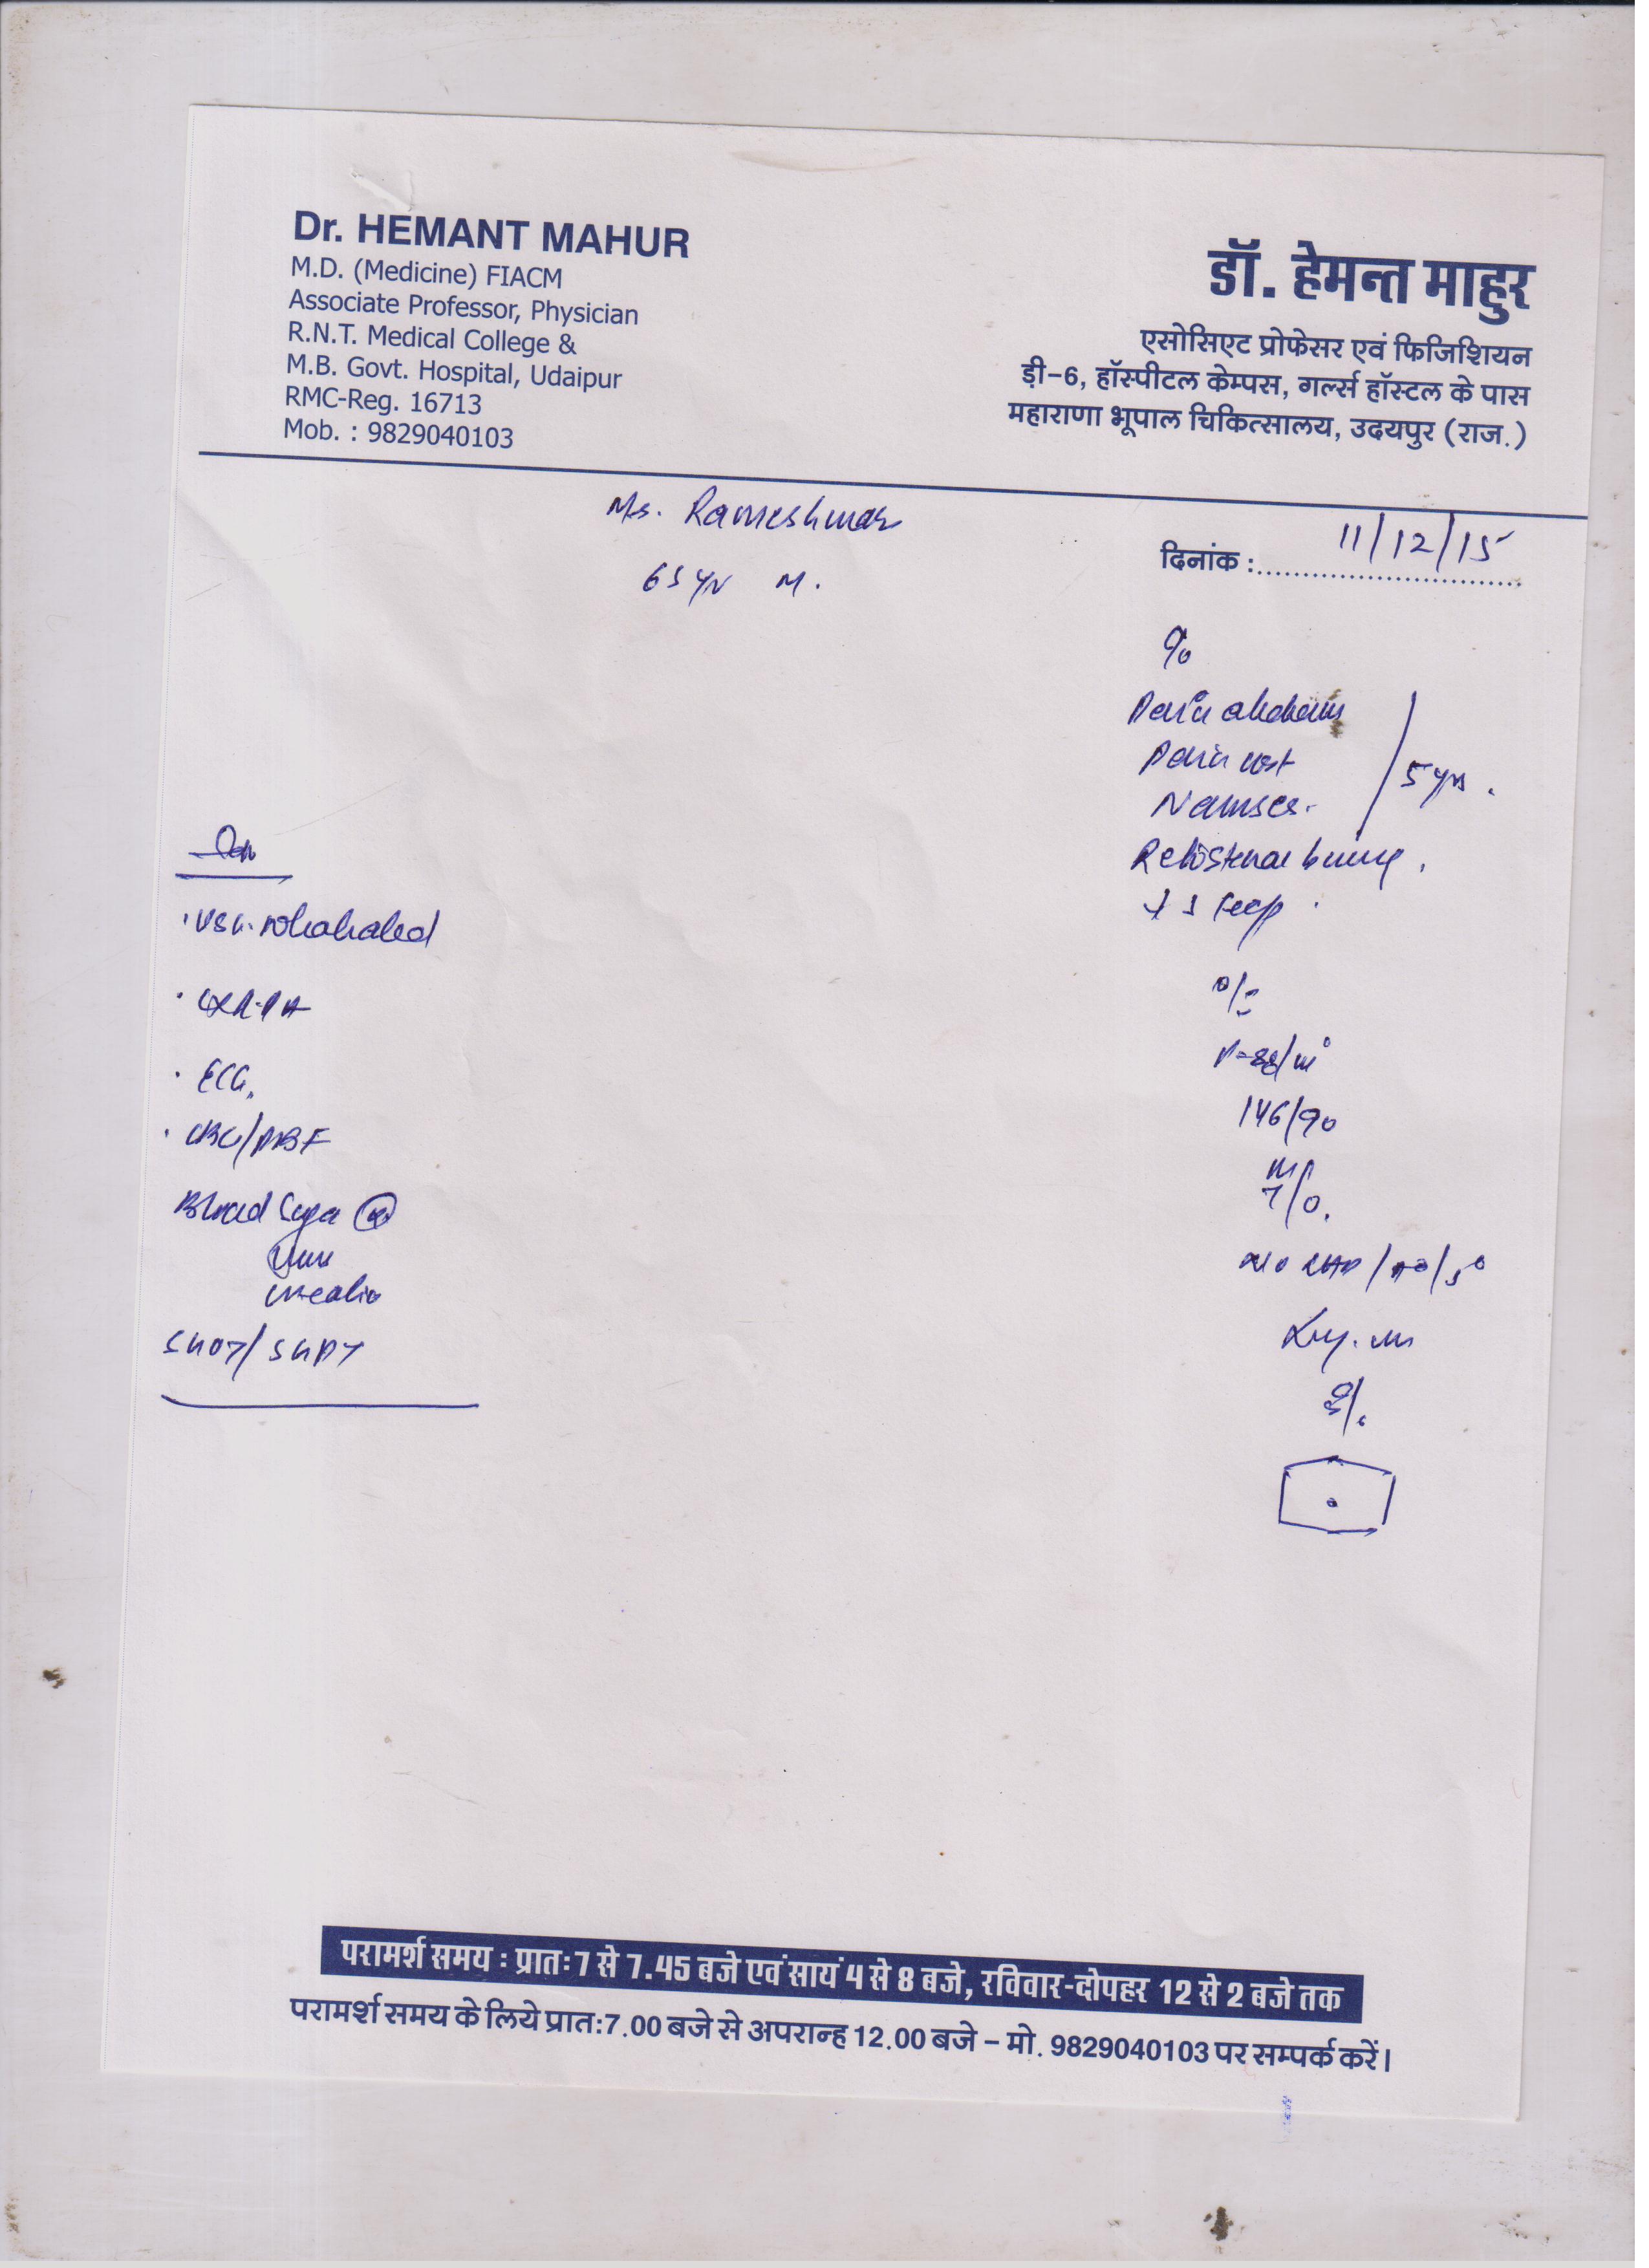 Dr. HEMANT MAHUR
M.D. (Medicine) FIACM
Associate Professor, Physician
R.N.T. Medical College &
M.B. Govt. Hospital, Udaipur
RMC-Reg. 16713
Mob. : 9829040103
डॉ. हेमन्त माहुर
एसोसिएट प्रोफेसर एवं फिजिशियन
ड़ी-6, हॉस्पीटल केम्पस, गर्ल्स हॉस्टल के पास
महाराणा भूपाल चिकित्सालय, उदयपुर (राज.)
Mr. Rameshwar
65 yr M.
दिनांक : 11/12/15
c/o
Pain abdomen
Pain
Nausea
5 yrs.
Retrosternal burning.
↓ sleep
o/e
P-88/m
146/90
CXR-PA
ECG
CBC/PBF
Blood Sugar
Urea
Creatin
SGOT/SGPT
परामर्श समय : प्रातः 7 से 7.45 बजे एवं सायं 4 से 8 बजे, रविवार-दोपहर 12 से 2 बजे तक
परामर्श समय के लिये प्रात:7.00 बजे से अपरान्ह 12.00 बजे – मो. 9829040103 पर सम्पर्क करें।